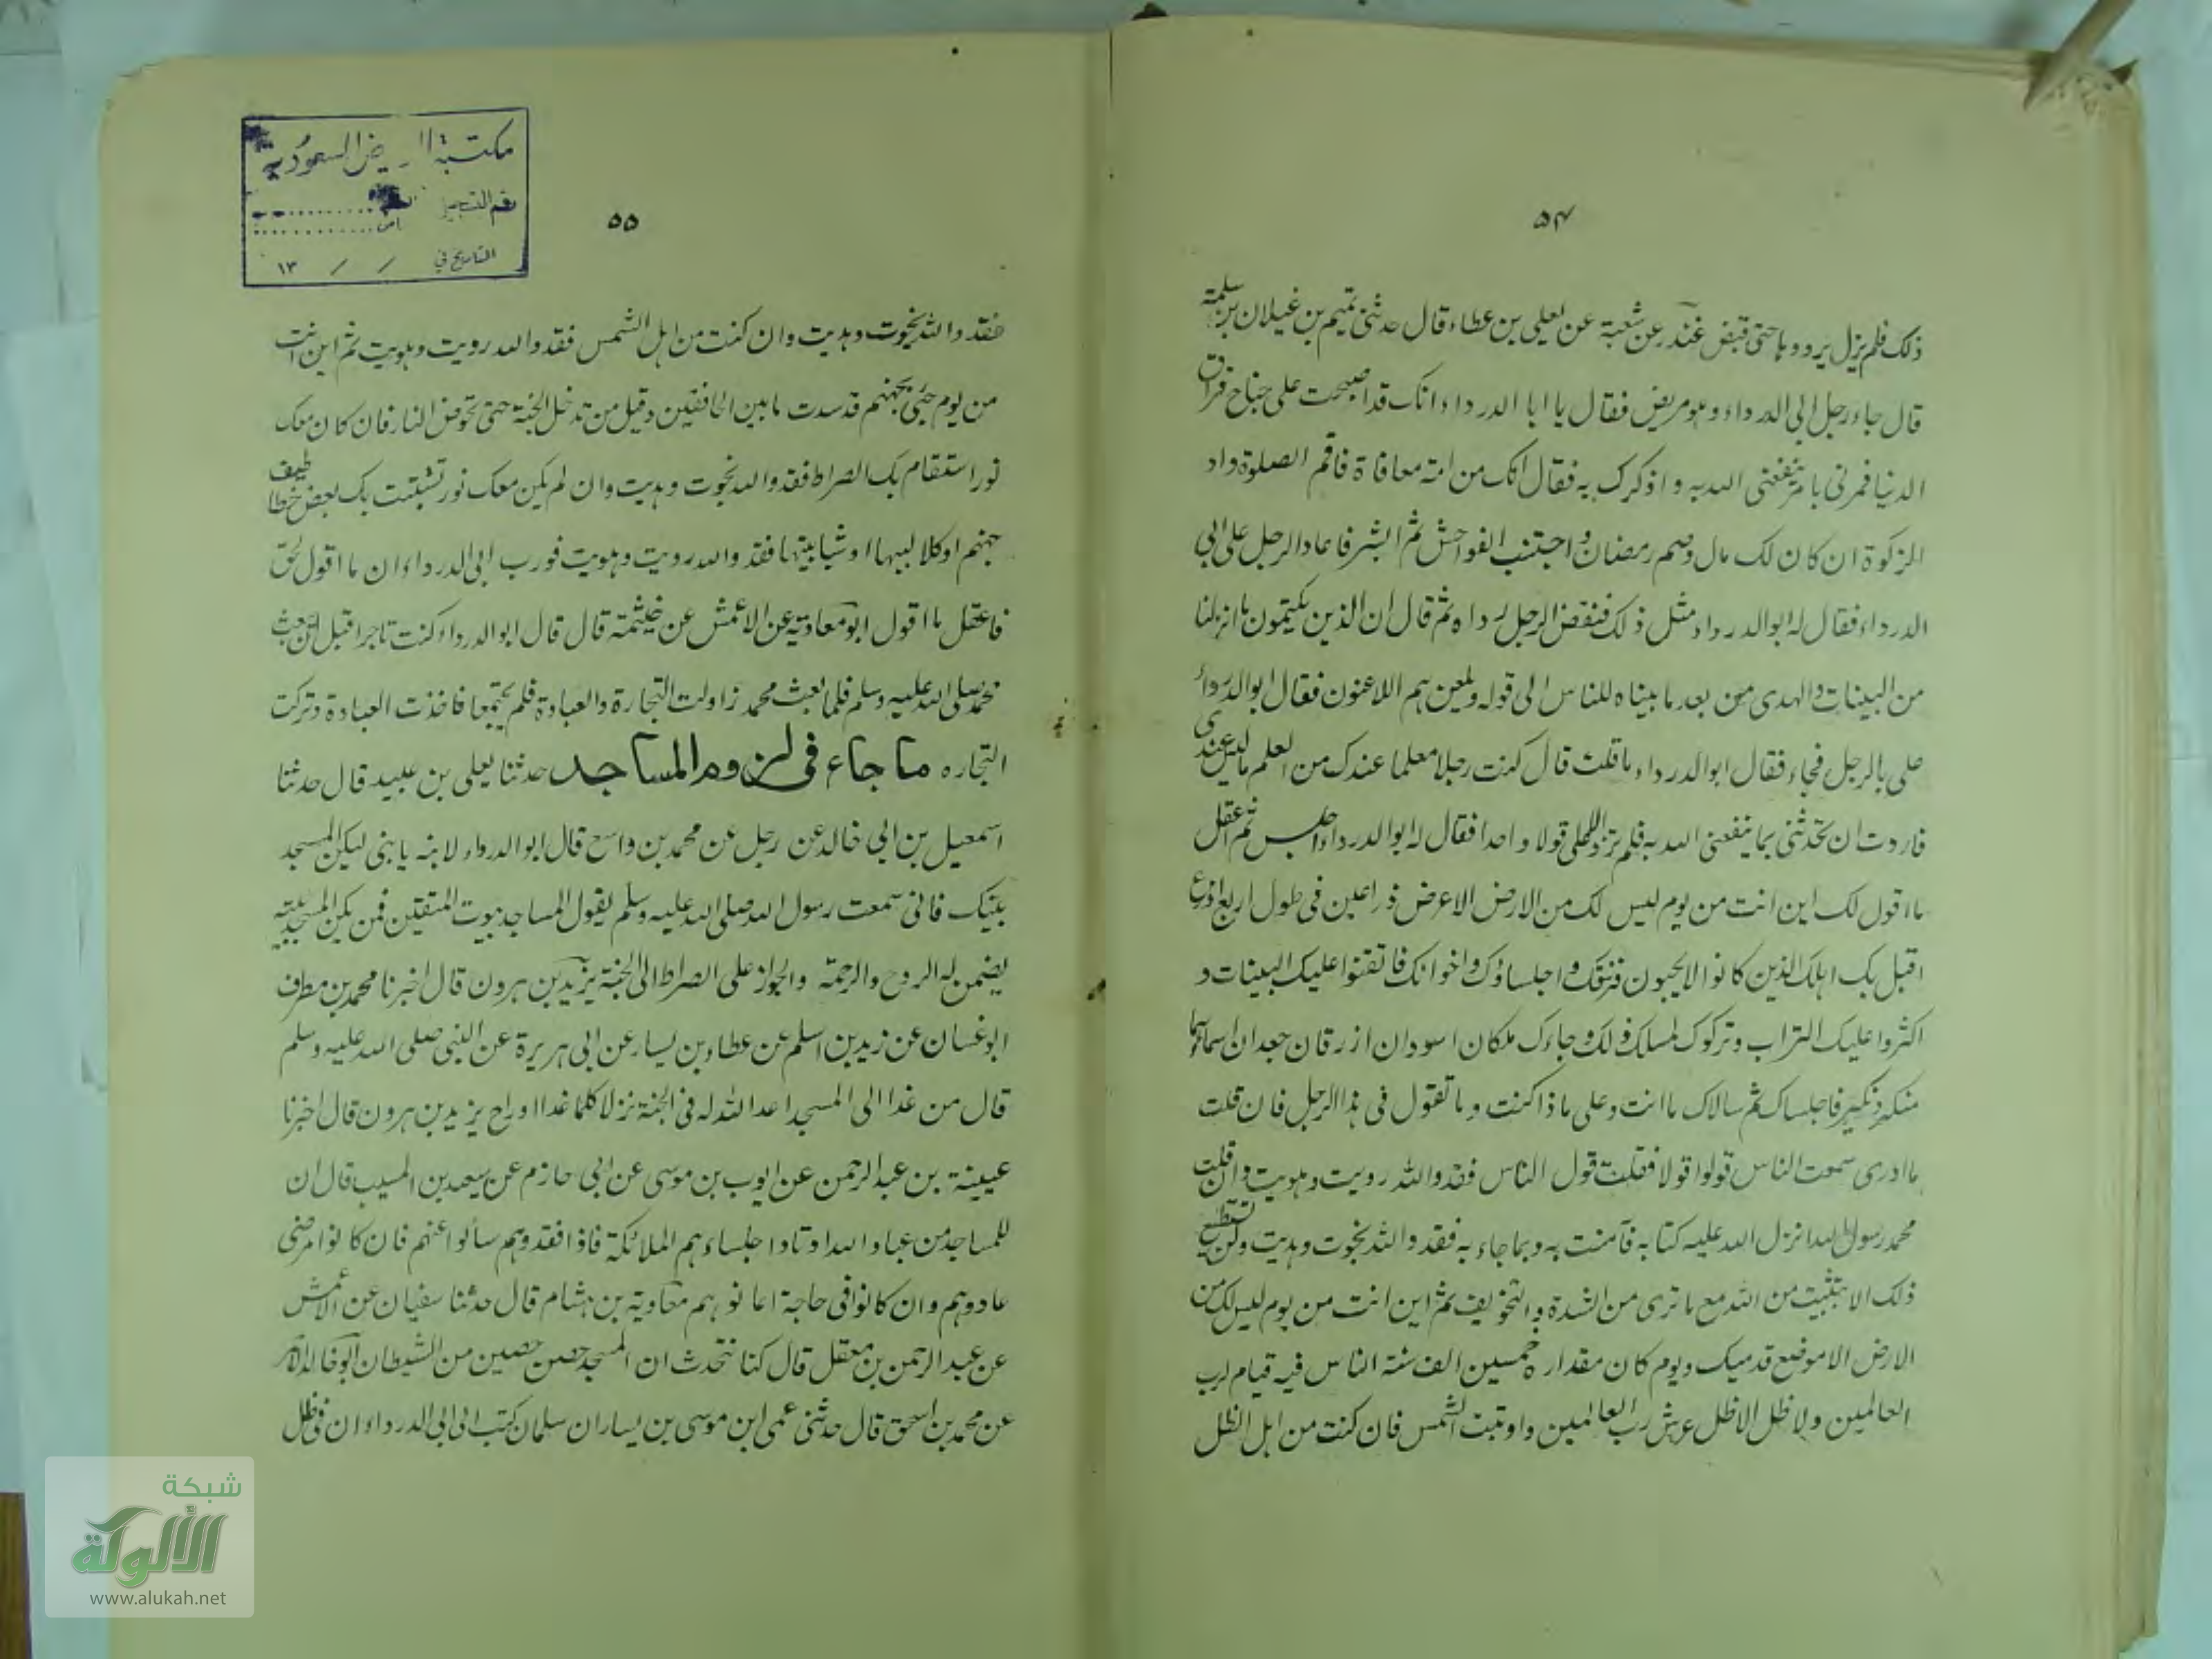 ٥٤
ذلك فلم يزل يرددها حتى قبض غندر عن شعبة عن يعلى بن عطاء قال حدثنى تميم بن غيلان بن سلمة
قال جاء رجل الى الدرداء وهو مريض فقال يا ابا الدرداء انك قد اصبحت على جناح فراق
الدنيا فمرنى بامر ينفعنى الله به واذكرك به فقال انك من امة معافاة فاقم الصلوة واد
الزكوة ان كان لك مال وصم رمضان واجتنب الفواحش ثم ابشر فاعاد الرجل على ابى
الدرداء فقال له ابو الدرداء مثل ذلك فنفض الرجل رداه ثم قال ان الذين يكتمون ما انزلنا
من البينات والهدى من بعد ما بيناه للناس الى قوله ويلعنهم اللاعنون فقال ابو الدرداء
على بالرجل فجاء فقال ابو الدرداء ما قلت قال كنت رجلا معلما عندك من العلم ما ليس عندى
فاردت ان تحدثنى بما ينفعنى الله به فلم ترد على الا قولا واحدا فقال له ابو الدرداء اجلس ثم اعقل
ما اقول لك اين انت من يوم ليس لك من الارض الا عرض ذراعين فى طول اربع اذرع
اقبل بك اهلك الذين كانوا لا يحبون فرقك واجلساؤك واخوانك فاتقنوا عليك البينات و
اكثروا عليك التراب وتركوك لمسلك ذلك وجاءك ملكان اسودان ازرقان جعدان اسماهما
منكر ونكير فاجلساك ثم سالاك ما انت وعلى ماذا كنت وما تقول فى هذا الرجل فان قلت
ما ادرى سمعت الناس قولوا قولا فقلت قول الناس فقد والله رويت وهويت وان قلت
محمد رسول الله انزل الله عليه كتابه فآمنت به وبما جاء به فقد والله نجوت وهديت ولن تستطيع
ذلك الا بتثبيت من الله مع ما ترى من الشدة والتخويف ثم اين انت من يوم ليس لك من
الارض الا موضع قدميك ويوم كان مقداره خمسين الف سنة الناس فيه قيام لرب
العالمين ولا ظل الا ظل عرش رب العالمين وادنيت الشمس فان كنت من اهل الظل
٥٥
فقد والله نجوت وهديت وان كنت من اهل الشمس فقد والله رويت وهويت ثم اين انت
من يوم جئ بجهنم قد سدت ما بين الخافقين وقيل من تدخل الجنة حتى تخوض النار فان كان معك
نور استقام بك الصراط فقد والله نجوت وهديت وان لم يكن معك نور تشبثت بك بعض خطاطيف
جهنم او كلاليبها او شبابيتها فقد والله رويت وهويت فورب ابى الدرداء ان ما اقول لحق
فاعقل ما اقول ابو معاوية عن الاعمش عن خيثمة قال قال ابو الدرداء كنت تاجرا قبل ان يبعث
محمد صلى الله عليه وسلم فلما بعث محمد زاولت التجارة والعبادة فلم يجتمعا فاخذت العبادة وتركت
التجاره ما جاء فى لزوم المساجد حدثنا يعلى بن عبيد قال حدثنا
اسمعيل بن ابى خالد عن رجل عن محمد بن واسع قال ابو الدرداء لابنه يا بنى ليكن المسجد
بيتك فانى سمعت رسول الله صلى الله عليه وسلم يقول المساجد بيوت المتقين فمن يكن المسجد بيته
يضمن له الروح والرحمة والجواز على الصراط الى الجنة يزيد بن هرون قال اخبرنا محمد بن مطرف
ابو غسان عن زيد بن اسلم عن عطاء بن يسار عن ابى هريرة عن النبى صلى الله عليه وسلم
قال من غدا الى المسجد اعد الله له فى الجنة نزلا كلما غدا او راح يزيد بن هرون قال اخبرنا
عيينة بن عبد الرحمن عن ايوب بن موسى عن ابى حازم عن سعيد بن المسيب قال ان
للمساجد من عباد الله اوتادا جلساءهم الملائكة فاذا فقدوهم سألوا عنهم فان كانوا مرضى
عادوهم وان كانوا فى حاجة اعانوهم معاوية بن هشام قال حدثنا سفيان عن الاعمش
عن عبد الرحمن بن معقل قال كنا نتحدث ان المسجد حصن حصين من الشيطان ابو خالد الاحمر
عن محمد بن اسحق قال حدثنى عمى ابن موسى بن يسار ان سلمان كتب الى ابى الدرداء ان فى ظل
مكتبة الرياض السعودية
رقم التسجيل
التاريخ فى / / ١٣
شبكة
الألوكة
www.alukah.net